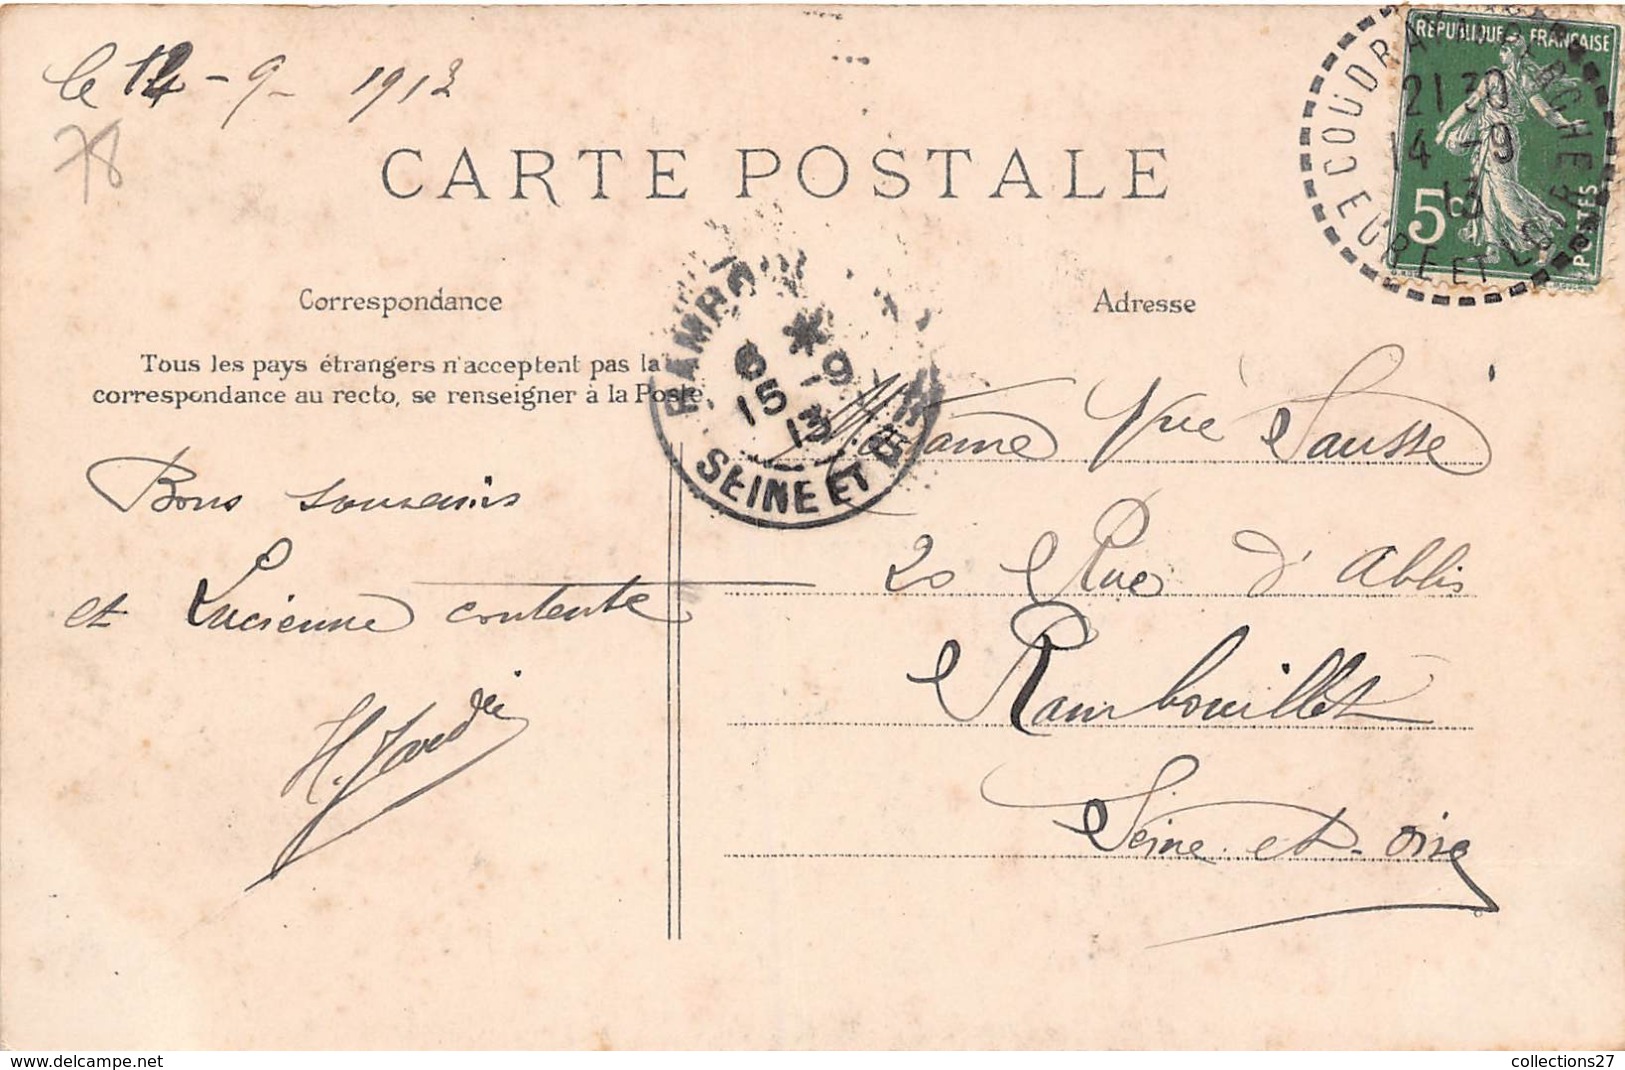 le 14-9- 1913
78
CARTE POSTALE
RÉPUBLIQUE FRANÇAISE
5c
POSTES
COUDRAY AU PERCHE
21 30
14 -9
13
EURE ET LOIR
Correspondance
Adresse
Tous les pays étrangers n'acceptent pas la
correspondance au recto, se renseigner à la Poste.
RAMBO
6 * 15 -9
13
SEINE ET
Bons souvenirs
et Lucienne contente
H.
Madame Vve Sausse
20 Rue d'Ablis
Rambouillet
Seine-et-Oise
collections27